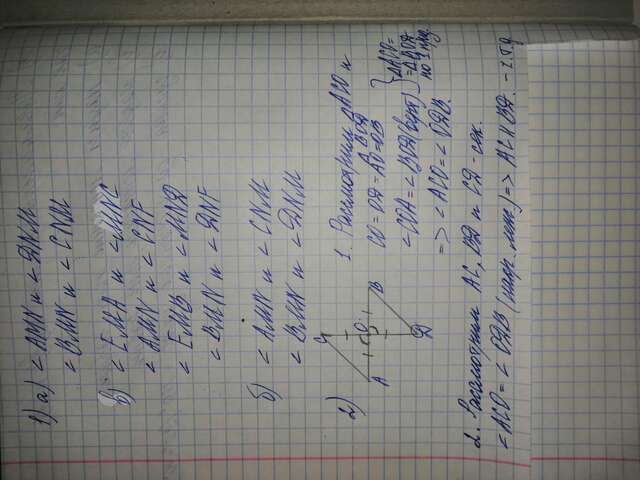 1) а) < AMN и < DNM
< BMN и < CNM
в) < EMA и < MNC
< AMN и < CNF
< EMB и < MND
< BMN и < DNF
б) < AMN и < CNM
< BMN и < DNM
2)
C
A
O
B
D
1. Рассмотрим △ACO и
△BOD
CO = OD = AO = OB
< COA = < BOD (верт)
} △ACO =
= △BOD
по 1 приз.
=> < ACO = < ODB.
2. Рассмотрим AC, BD и CD - сек.
< ACO = < ODB (накр. леж.) => AC || BD. - ч.т.д.